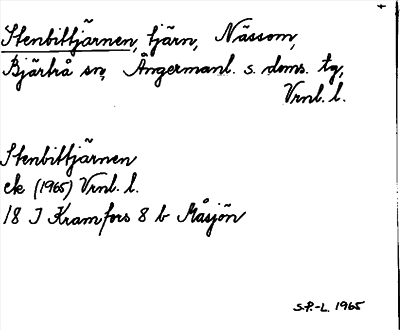 Stenbittjärnen, tjärn, Nässom,
Bjärtrå sn, Ångermanl. s. doms. tg,
Vrnl. l.
Stenbittjärnen
ek (1965) Vrnl. l.
18 J Kramfors 8 b Måsjön
S.P.-L. 1965